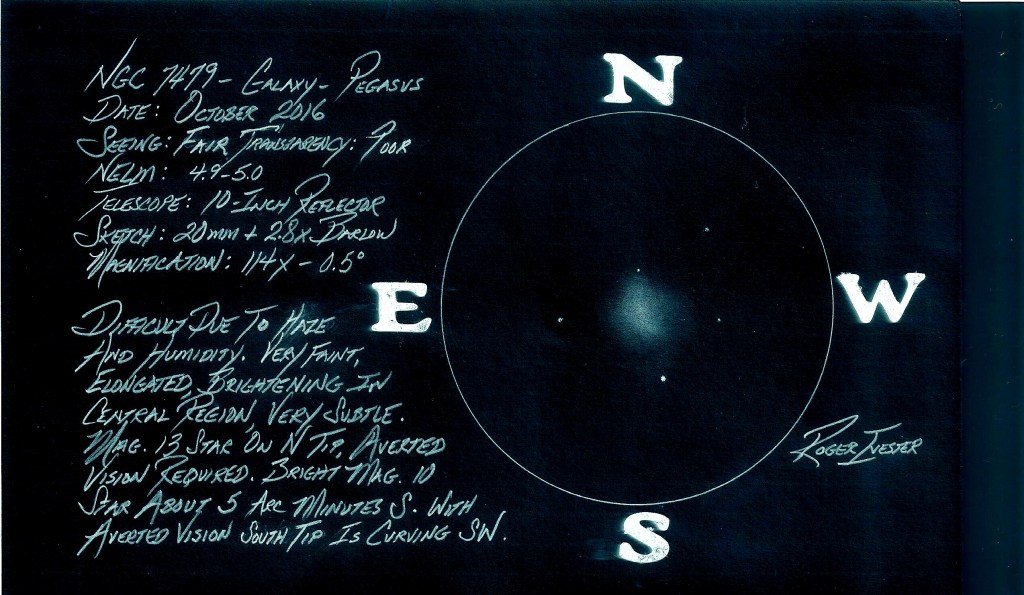 NGC 7479 - GALAXY - PEGASUS
DATE: OCTOBER 2016
SEEING: FAIR TRANSPARENCY: POOR
NELM: 4.9-5.0
TELESCOPE: 10-INCH REFLECTOR
SKETCH: 20MM + 2.8X BARLOW
MAGNIFICATION: 114X - 0.5°
DIFFICULT DUE TO HAZE
AND HUMIDITY. VERY FAINT,
ELONGATED, BRIGHTENING IN
CENTRAL REGION, VERY SUBTLE.
MAG. 13 STAR ON N TIP, AVERTED
VISION REQUIRED. BRIGHT MAG. 10
STAR ABOUT 5 ARC MINUTES S. WITH
AVERTED VISION SOUTH TIP IS CURVING SW.
N
E
W
S
ROGER IVESTER